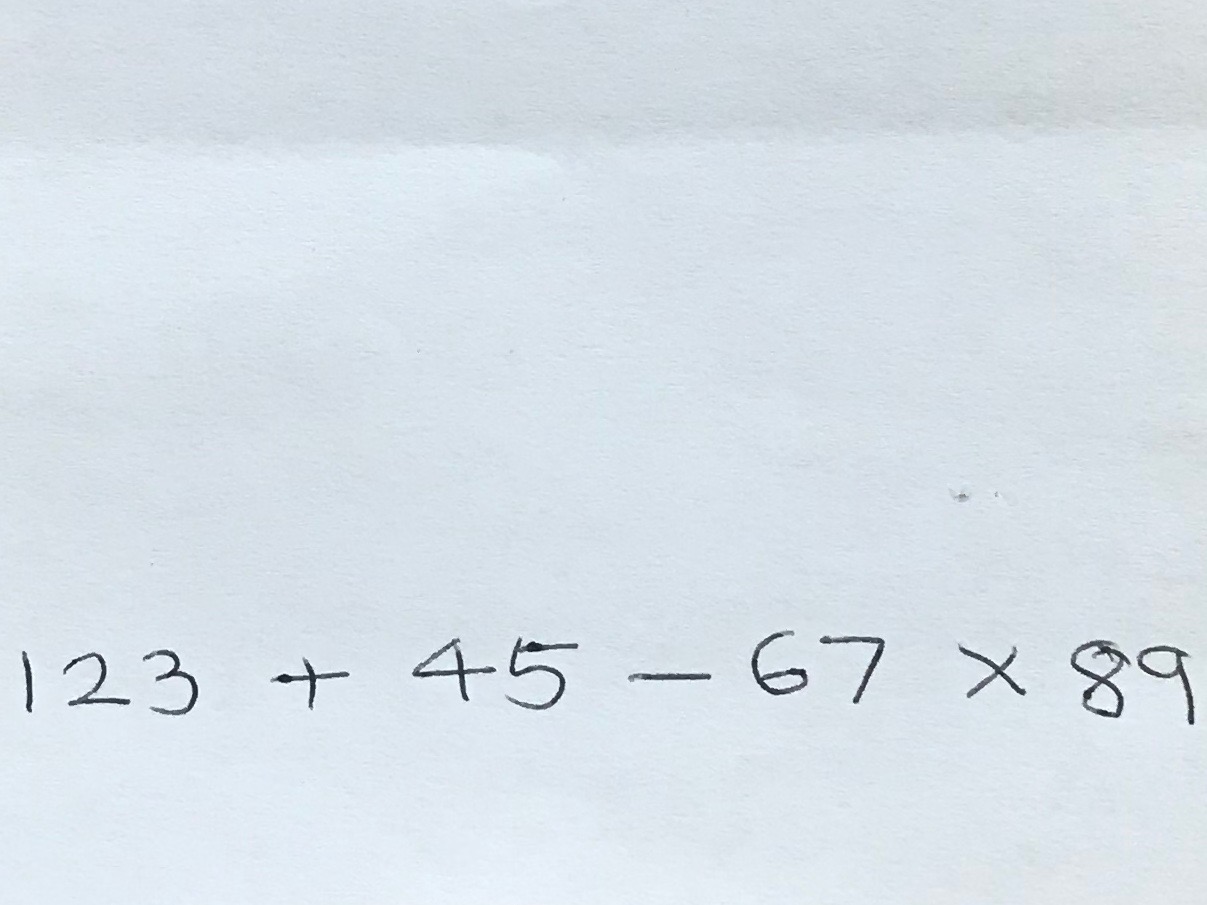 123 + 45 - 67 × 89